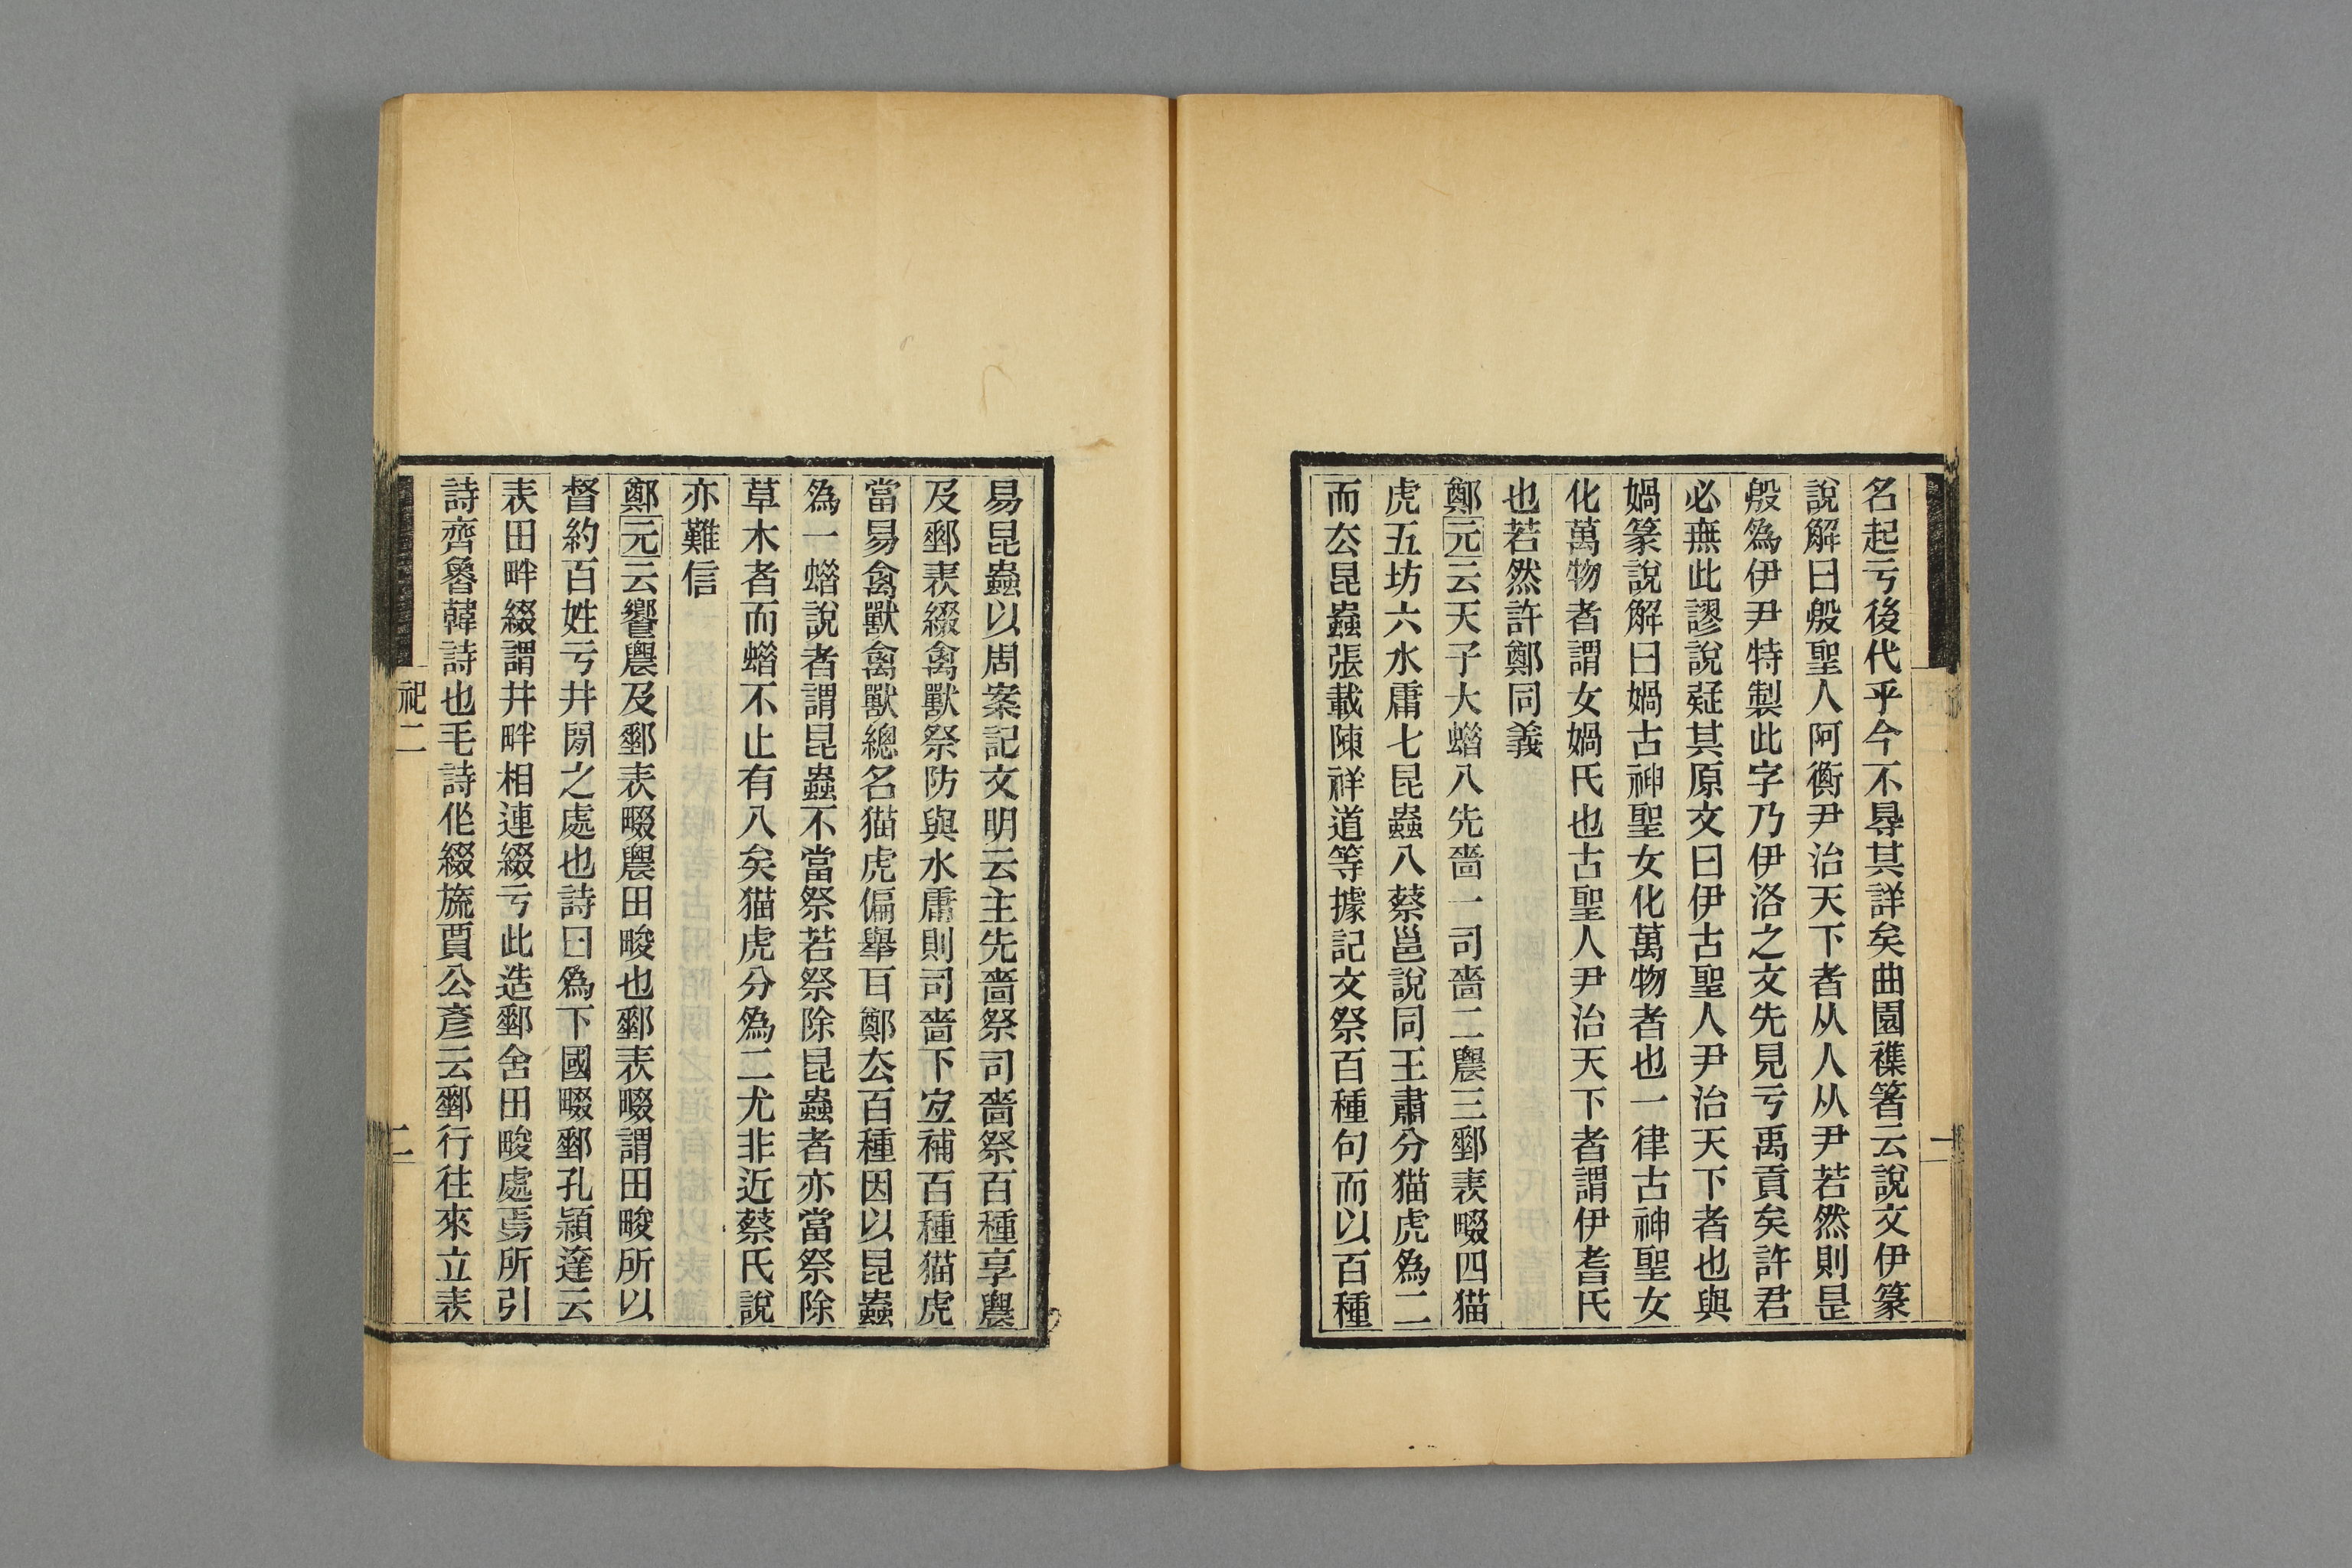 名起亏後代乎今不㝵其詳矣曲園襍箸云說文伊篆
說解曰殷聖人阿衡尹治天下者从人从尹若然則是
殷爲伊尹特製此字乃伊洛之文先見亏禹貢矣許君
必無此謬說疑其原文曰伊古聖人尹治天下者也與
媧篆說解曰媧古神聖女化萬物者也一律古神聖女
化萬物者謂女媧氏也古聖人尹治天下者謂伊耆氏
也若然許鄭同義
鄭元云天子大蜡八先嗇一司嗇二農三郵表畷四猫
虎五坊六水庸七昆蟲八蔡邕說同王肅分猫虎爲二
而厺昆蟲張載陳祥道等據記文祭百種句而以百種
易昆蟲以周案記文明云主先嗇祭司嗇祭百種享農
及郵表綴禽獸祭防與水庸則司嗇下宐補百種猫虎
當易禽獸禽獸總名猫虎偏舉百鄭厺百種因以昆蟲
爲一蜡說者謂昆蟲不當祭若祭除昆蟲者亦當祭除
草木者而蜡不止有八矣猫虎分爲二尤非近蔡氏說
亦難信
鄭元云饗農及郵表畷農田畯也郵表畷謂田畯所以
督約百姓亏井閒之處也詩曰爲下國畷郵孔穎達云
表田畔綴謂井畔相連綴亏此造郵舍田畯處焉所引
詩齊魯韓詩也毛詩作綴旒賈公彥云郵行往來立表
祀二
二